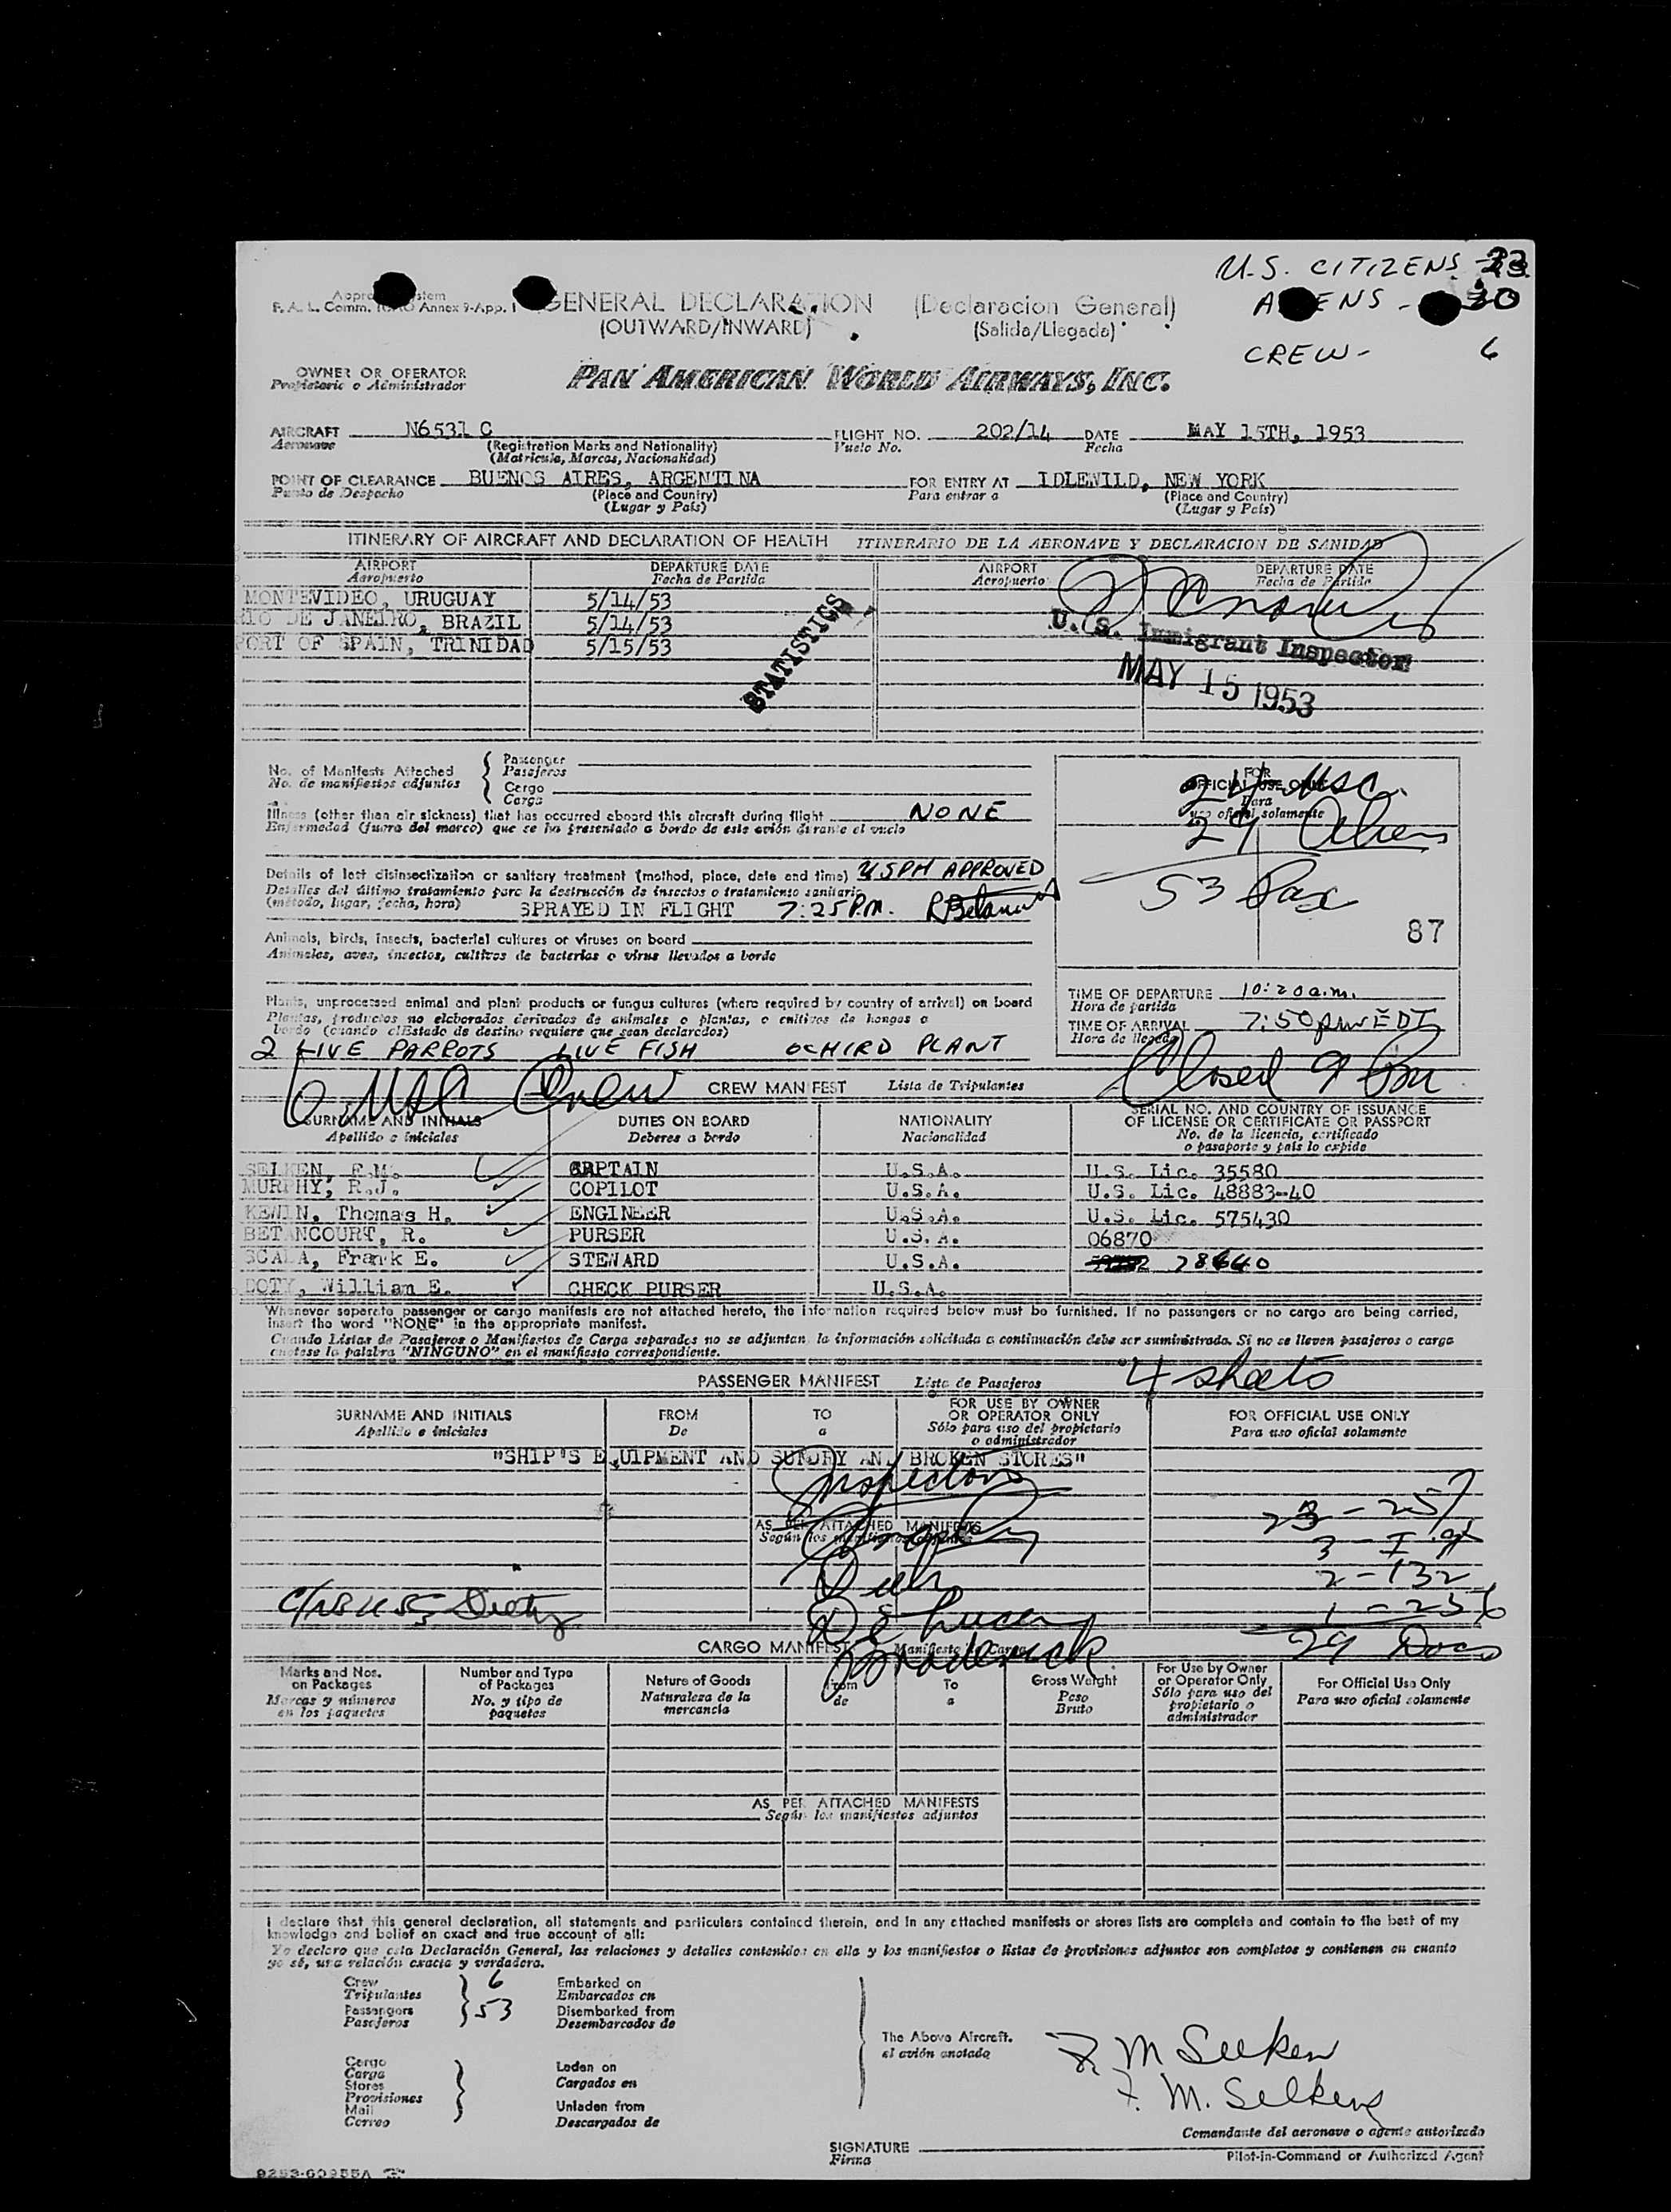 U.S. CITIZENS
30
CREW - 6
F. A. L. Comm. Annex 9-App. 1
GENERAL DECLARATION (Declaracion General)
(OUTWARD/INWARD) (Salida/Llegada)
OWNER OR OPERATOR
Propietario o Administrador
PAN AMERICAN WORLD AIRWAYS, INC.
AIRCRAFT N6531 C FLIGHT NO. 202/14 DATE MAY 15TH, 1953
Aeronave (Registration Marks and Nationality) Vuelo No. Fecha
(Matricula, Marcas, Nacionalidad)
POINT OF CLEARANCE BUENOS AIRES, ARGENTINA FOR ENTRY AT IDLEWILD, NEW YORK
Punto de Despacho (Place and Country) Para entrar a (Place and Country)
(Lugar y País) (Lugar y País)
ITINERARY OF AIRCRAFT AND DECLARATION OF HEALTH ITINERARIO DE LA AERONAVE Y DECLARACION DE SANIDAD
AIRPORT DEPARTURE DATE AIRPORT DEPARTURE DATE
Aeropuerto Fecha de Partida Aeropuerto Fecha de Partida
MONTEVIDEO, URUGUAY 5/14/53
RIO DE JANEIRO, BRAZIL 5/14/53
PORT OF SPAIN, TRINIDAD 5/15/53
STATISTICS
U.S. Immigrant Inspector
MAY 15 1953
No. of Manifests Attached Passenger
No. de manifiestos adjuntos Pasajeros
Cargo
Carga
FOR
OFFICIAL USE ONLY
Para
uso oficial solamente
24 USC
29 Aliens
53 Pax
87
Illness (other than air sickness) that has occurred aboard this aircraft during flight NONE
Enfermedad (fuera del mareo) que se ha presentado a bordo de este avión durante el vuelo
Details of last disinsectization or sanitary treatment (method, place, date and time) USPH APPROVED
Detalles del último tratamiento para la destrucción de insectos o tratamiento sanitario
(método, lugar, fecha, hora) SPRAYED IN FLIGHT 7:25 P.M.
Animals, birds, insects, bacterial cultures or viruses on board
Animales, aves, insectos, cultivos de bacterias o virus llevados a bordo
Plants, unprocessed animal and plant products or fungus cultures (where required by country of arrival) on board
Plantas, productos no elaborados derivados de animales o plantas, o cultivos de hongos a
bordo (cuando el Estado de destino requiere que sean declarados)
2 LIVE PARROTS LIVE FISH OCHIRD PLANT
TIME OF DEPARTURE 10:20 a.m.
Hora de partida
TIME OF ARRIVAL 7:50 pm EDT
Hora de llegada
Closed 9 Pm
6 USC Crew
CREW MANIFEST Lista de Tripulantes
SURNAME AND INITIALS DUTIES ON BOARD NATIONALITY SERIAL NO. AND COUNTRY OF ISSUANCE
OF LICENSE OR CERTIFICATE OR PASSPORT
Apellido e iniciales Deberes a bordo Nacionalidad No. de la licencia, certificado
o pasaporte y país lo expide
SELKEN, F.M. CAPTAIN U.S.A. U.S. Lic. 35580
MURPHY, R.J. COPILOT U.S.A. U.S. Lic. 48883-40
KEWIN, Thomas H. ENGINEER U.S.A. U.S. Lic. 575430
BETANCOURT, R. PURSER U.S.A. 06870
SCALA, Frank E. STEWARD U.S.A.
DOTY, William E. CHECK PURSER U.S.A.
Whenever separate passenger or cargo manifests are not attached hereto, the information required below must be furnished. If no passengers or no cargo are being carried,
insert the word "NONE" in the appropriate manifest.
Cuando Listas de Pasajeros o Manifiestos de Carga separados no se adjuntan, la información solicitada a continuación debe ser suministrada. Si no se lleven pasajeros o carga
anotese la palabra "NINGUNO" en el manifiesto correspondiente.
PASSENGER MANIFEST Lista de Pasajeros 4 sheets
SURNAME AND INITIALS FROM TO FOR USE BY OWNER OR OPERATOR ONLY FOR OFFICIAL USE ONLY
Apellido e iniciales De a Sólo para uso del propietario o administrador Para uso oficial solamente
"SHIP'S EQUIPMENT AND SUNDRY AND BROKEN STORES"
Inspectors
AS PER ATTACHED MANIFESTS
Según los manifiestos adjuntos
23 - 257
2 - 132
1 - 256
29 Docs
De Lucca
Broderick
CARGO MANIFEST Manifiesto de Carga
Marks and Nos. on Packages Number and Type of Packages Nature of Goods From To Gross Weight For Use by Owner or Operator Only For Official Use Only
Marcas y números en los paquetes No. y tipo de paquetes Naturaleza de la mercancía de a Peso Bruto Sólo para uso del propietario o administrador Para uso oficial solamente
AS PER ATTACHED MANIFESTS
Según los manifiestos adjuntos
I declare that this general declaration, all statements and particulars contained therein, and in any attached manifests or stores lists are complete and contain to the best of my
knowledge and belief an exact and true account of all:
Yo declaro que esta Declaración General, las relaciones y detalles contenidos en ella y los manifiestos o listas de provisiones adjuntos son completos y contienen en cuanto
yo sé, una relación exacta y verdadera.
Crew 6 Embarked on
Tripulantes Embarcados en
Passengers 53 Disembarked from
Pasajeros Desembarcados de
The Above Aircraft.
el avión anotado
Cargo Laden on
Carga Cargados en
Stores
Provisiones
Mail Unladen from
Correo Descargados de
F. M Selken
F. M. Selken
Comandante del aeronave o agente autorizado
SIGNATURE
Firma
Pilot-in-Command or Authorized Agent